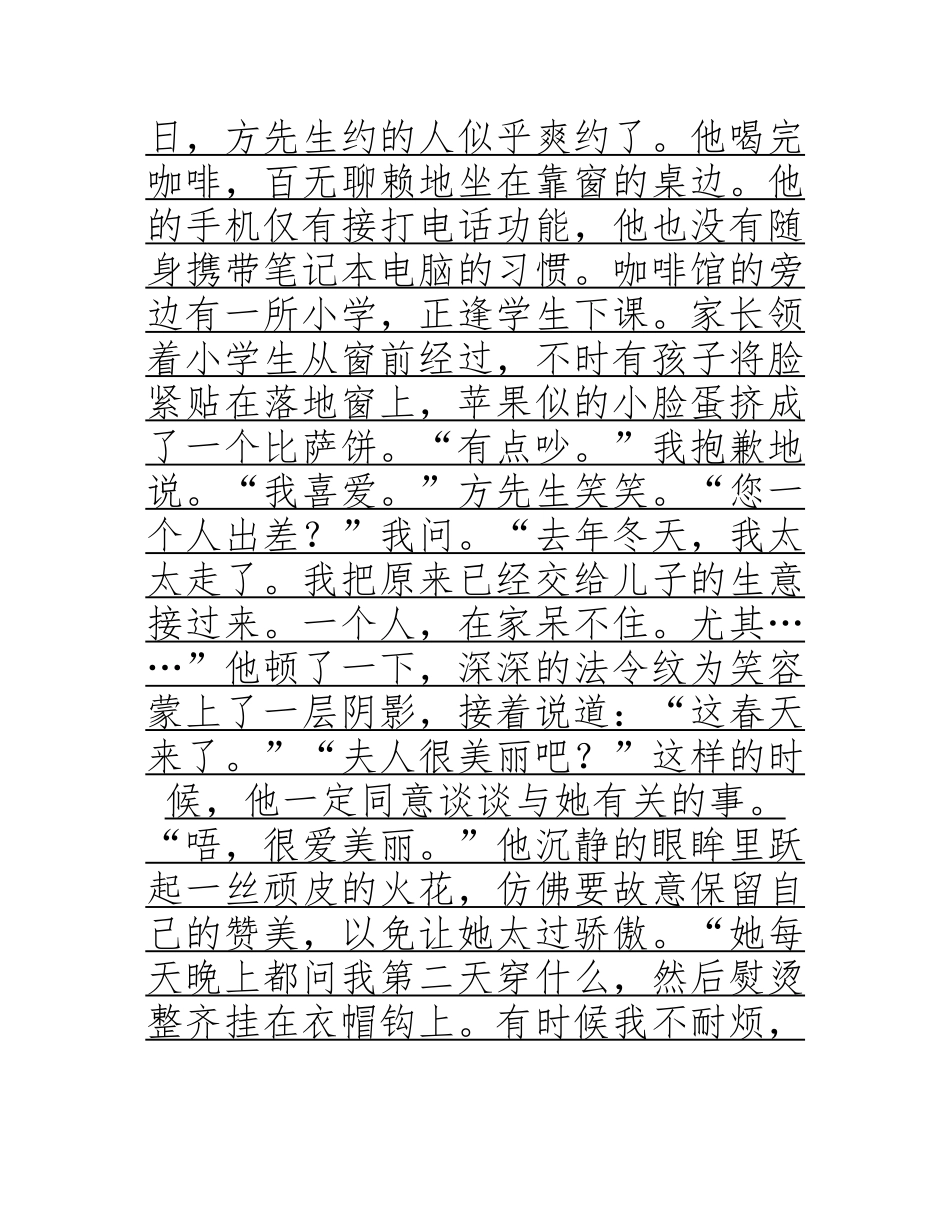 日，方先生约的人似乎爽约了。他喝完
咖啡，百无聊赖地坐在靠窗的桌边。他
的手机仅有接打电话功能，他也没有随
身携带笔记本电脑的习惯。咖啡馆的旁
边有一所小学，正逢学生下课。家长领
着小学生从窗前经过，不时有孩子将脸
紧贴在落地窗上，苹果似的小脸蛋挤成
了一个比萨饼。“有点吵。”我抱歉地
说。“我喜爱。”方先生笑笑。“您一
个人出差？”我问。“去年冬天，我太
太走了。我把原来已经交给儿子的生意
接过来。一个人，在家呆不住。尤其…
…”他顿了一下，深深的法令纹为笑容
蒙上了一层阴影，接着说道：“这春天
来了。”“夫人很美丽吧？”这样的时
候，他一定同意谈谈与她有关的事。
“唔，很爱美丽。”他沉静的眼眸里跃
起一丝顽皮的火花，仿佛要故意保留自
己的赞美，以免让她太过骄傲。“她每
天晚上都问我第二天穿什么，然后熨烫
整齐挂在衣帽钩上。有时候我不耐烦，